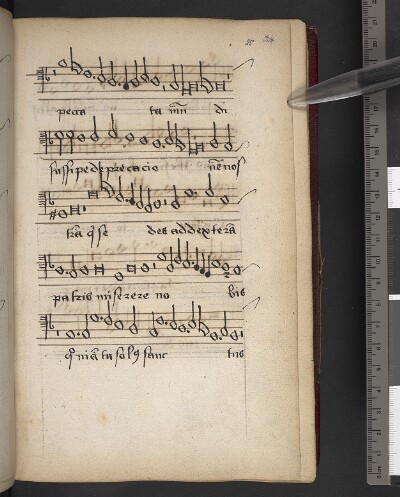 pecca ta mūdi
suscipe deprecacionē nos
trā q sedes ad dexterā
patris miserere nobis
qm̄ tu solus sanctus